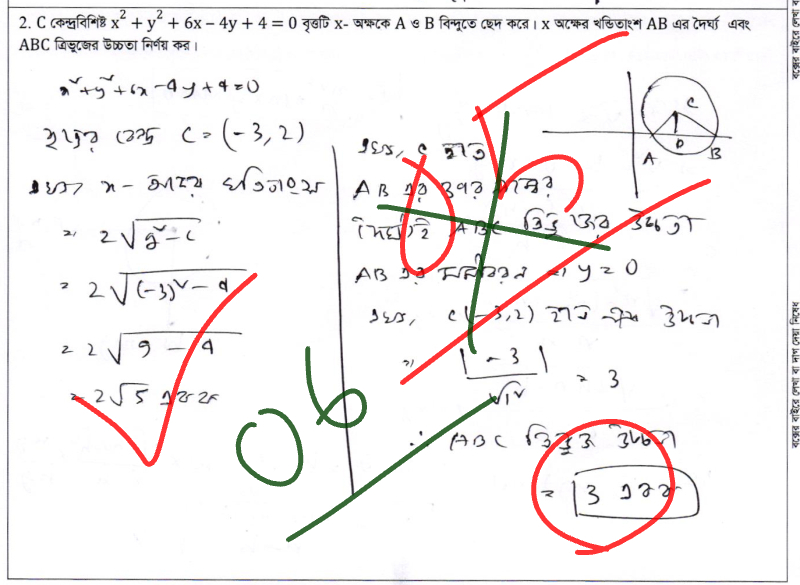 2. C কেন্দ্রবিশিষ্ট x² + y² + 6x – 4y + 4 = 0 বৃত্তটি x- অক্ষকে A ও B বিন্দুতে ছেদ করে। x অক্ষের খন্ডিতাংশ AB এর দৈর্ঘ্য এবং
ABC ত্রিভুজের উচ্চতা নির্ণয় কর।
x²+y²+6x-4y+4=0
বৃত্তের কেন্দ্র C = (-3, 2)
এখন, x- অক্ষের খন্ডিতাংশ
= 2√(g²-c)
= 2√((-3)²-4)
= 2√(9-4)
= 2√5 একক
এখন, C হতে
AB এর উপর লম্বের
দৈর্ঘ্যই ABC ত্রিভুজের উচ্চতা
AB এর সমীকরণ y = 0
এখন, C(-3,2) হতে উচ্চতা
= |-3| / √1² = 3
∴ ABC ত্রিভুজের উচ্চতা
= 3 একক
C
A D B
06
বক্সের বাইরে লেখা বা দাগ দেয়া নিষেধ